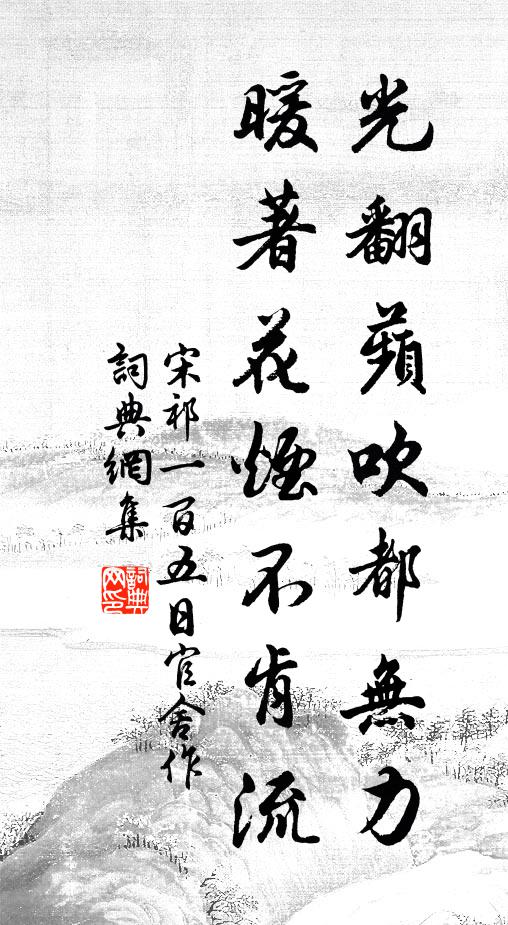 光翻蘋吹都無力
暖著花煙不肯流
宋祁一百五日官舍作
詞典網集
詞典网印